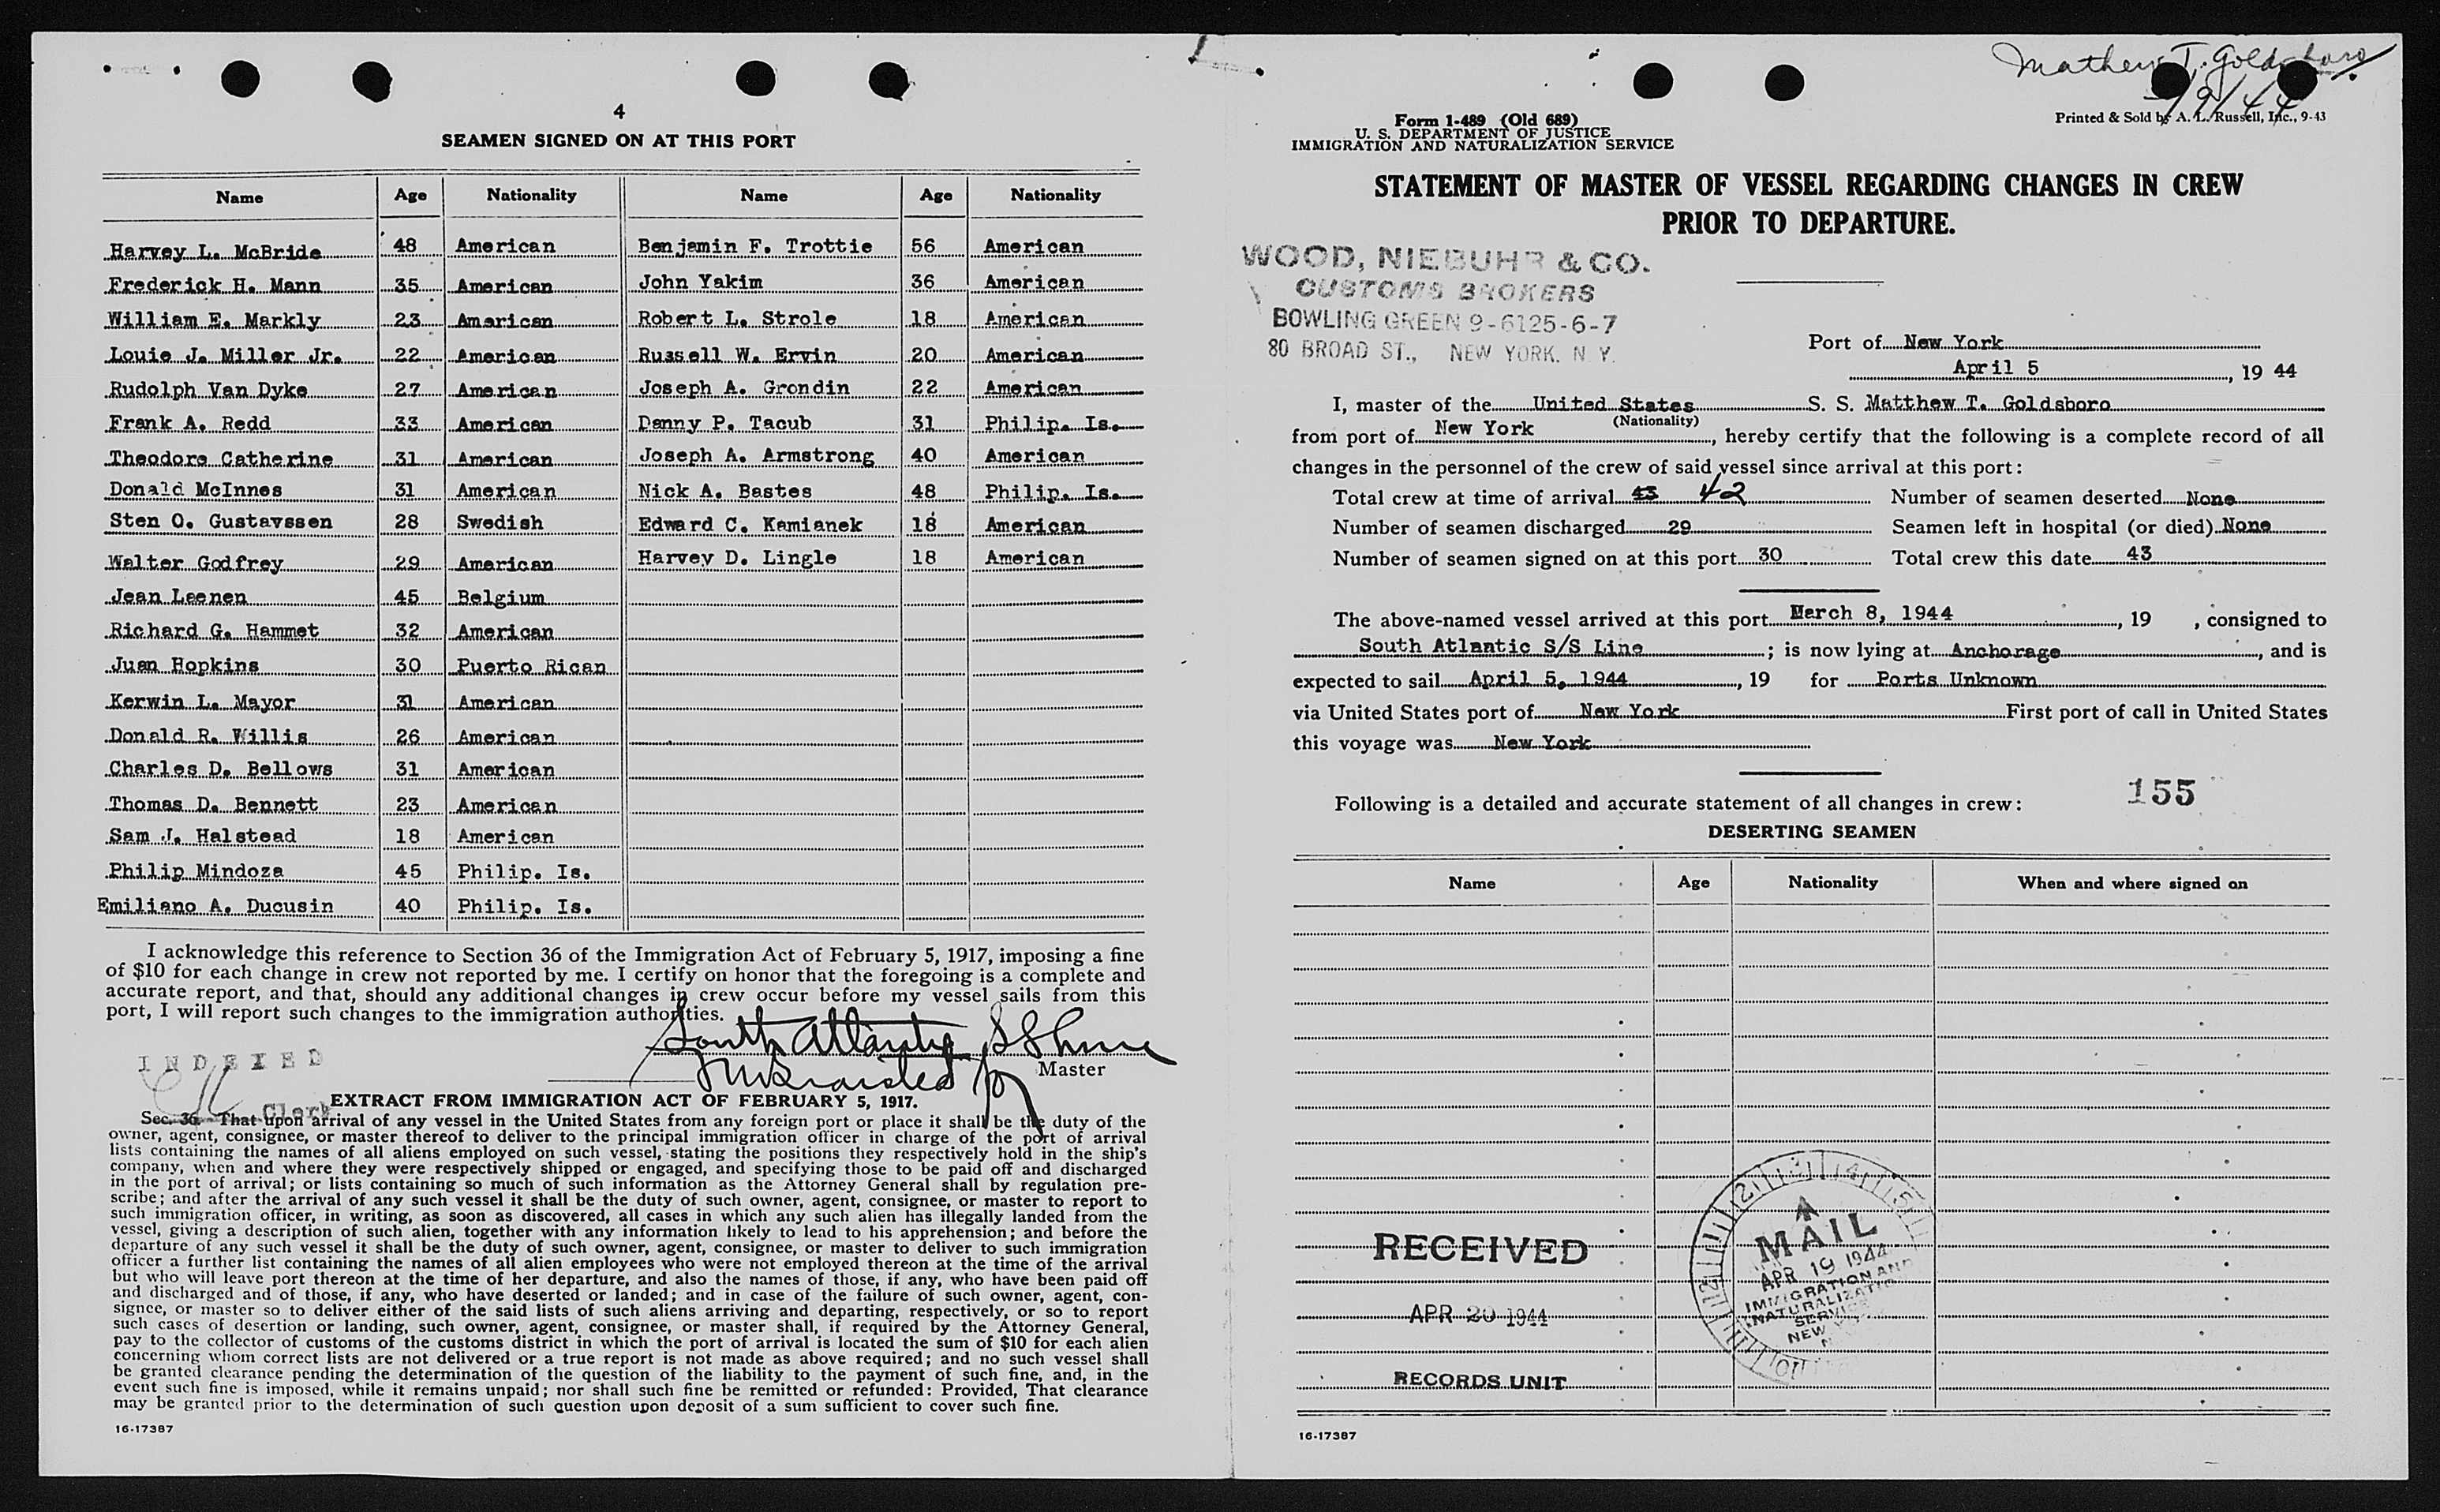 4
SEAMEN SIGNED ON AT THIS PORT
Name Age Nationality Name Age Nationality
Harvey L. McBride 48 American Benjamin F. Trottie 56 American
Frederick H. Mann 35 American John Yakim 36 American
William E. Markly 23 American Robert L. Strole 18 American
Louie J. Miller Jr. 22 American Russell W. Ervin 20 American
Rudolph Van Dyke 27 American Joseph A. Grondin 22 American
Frank A. Redd 33 American Danny P. Tacub 31 Philip. Is.
Theodore Catherine 31 American Joseph A. Armstrong 40 American
Donald McInnes 31 American Nick A. Bastes 48 Philip. Is.
Sten O. Gustavssen 28 Swedish Edward C. Kamianek 18 American
Walter Godfrey 29 American Harvey D. Lingle 18 American
Jean Leenen 45 Belgium
Richard G. Hammet 32 American
Juan Hopkins 30 Puerto Rican
Kerwin L. Mayor 31 American
Donald R. Willis 26 American
Charles D. Bellows 31 American
Thomas D. Bennett 23 American
Sam J. Halstead 18 American
Philip Mindoza 45 Philip. Is.
Emiliano A. Ducusin 40 Philip. Is.
I acknowledge this reference to Section 36 of the Immigration Act of February 5, 1917, imposing a fine
of $10 for each change in crew not reported by me. I certify on honor that the foregoing is a complete and
accurate report, and that, should any additional changes in crew occur before my vessel sails from this
port, I will report such changes to the immigration authorities.
South Atlantic SS Line
Master
INDEXED
Clerk
EXTRACT FROM IMMIGRATION ACT OF FEBRUARY 5, 1917.
Sec. 36. That upon arrival of any vessel in the United States from any foreign port or place it shall be the duty of the
owner, agent, consignee, or master thereof to deliver to the principal immigration officer in charge of the port of arrival
lists containing the names of all aliens employed on such vessel, stating the positions they respectively hold in the ship's
company, when and where they were respectively shipped or engaged, and specifying those to be paid off and discharged
in the port of arrival; or lists containing so much of such information as the Attorney General shall by regulation pre-
scribe; and after the arrival of any such vessel it shall be the duty of such owner, agent, consignee, or master to report to
such immigration officer, in writing, as soon as discovered, all cases in which any such alien has illegally landed from the
vessel, giving a description of such alien, together with any information likely to lead to his apprehension; and before the
departure of any such vessel it shall be the duty of such owner, agent, consignee, or master to deliver to such immigration
officer a further list containing the names of all alien employees who were not employed thereon at the time of the arrival
but who will leave port thereon at the time of her departure, and also the names of those, if any, who have been paid off
and discharged and of those, if any, who have deserted or landed; and in case of the failure of such owner, agent, con-
signee, or master so to deliver either of the said lists of such aliens arriving and departing, respectively, or so to report
such cases of desertion or landing, such owner, agent, consignee, or master shall, if required by the Attorney General,
pay to the collector of customs of the customs district in which the port of arrival is located the sum of $10 for each alien
concerning whom correct lists are not delivered or a true report is not made as above required; and no such vessel shall
be granted clearance pending the determination of the question of the liability to the payment of such fine, and, in the
event such fine is imposed, while it remains unpaid; nor shall such fine be remitted or refunded: Provided, That clearance
may be granted prior to the determination of such question upon deposit of a sum sufficient to cover such fine.
16-17387
Mathew T. Goldsboro
Form 1-489 (Old 689)
U. S. DEPARTMENT OF JUSTICE
IMMIGRATION AND NATURALIZATION SERVICE
Printed & Sold by A. L. Russell, Inc., 9-43
STATEMENT OF MASTER OF VESSEL REGARDING CHANGES IN CREW
PRIOR TO DEPARTURE.
WOOD, NIEBUHR & CO.
CUSTOMS BROKERS
BOWLING GREEN 9-6125-6-7
80 BROAD ST., NEW YORK. N. Y.
Port of New York
April 5, 19 44
I, master of the United States S. S. Matthew T. Goldsboro
(Nationality)
from port of New York, hereby certify that the following is a complete record of all
changes in the personnel of the crew of said vessel since arrival at this port:
Total crew at time of arrival 43 42 Number of seamen deserted None
Number of seamen discharged 29 Seamen left in hospital (or died) None
Number of seamen signed on at this port 30 Total crew this date 43
The above-named vessel arrived at this port March 8, 1944, 19 , consigned to
South Atlantic S/S Line; is now lying at Anchorage, and is
expected to sail April 5, 1944, 19 for Ports Unknown
via United States port of New York First port of call in United States
this voyage was New York
155
Following is a detailed and accurate statement of all changes in crew:
DESERTING SEAMEN
Name Age Nationality When and where signed on
RECEIVED
APR 20 1944
RECORDS UNIT
MAIL
APR 19 1944
IMMIGRATION AND
NATURALIZATION
SERVICE
NEW
16-17387